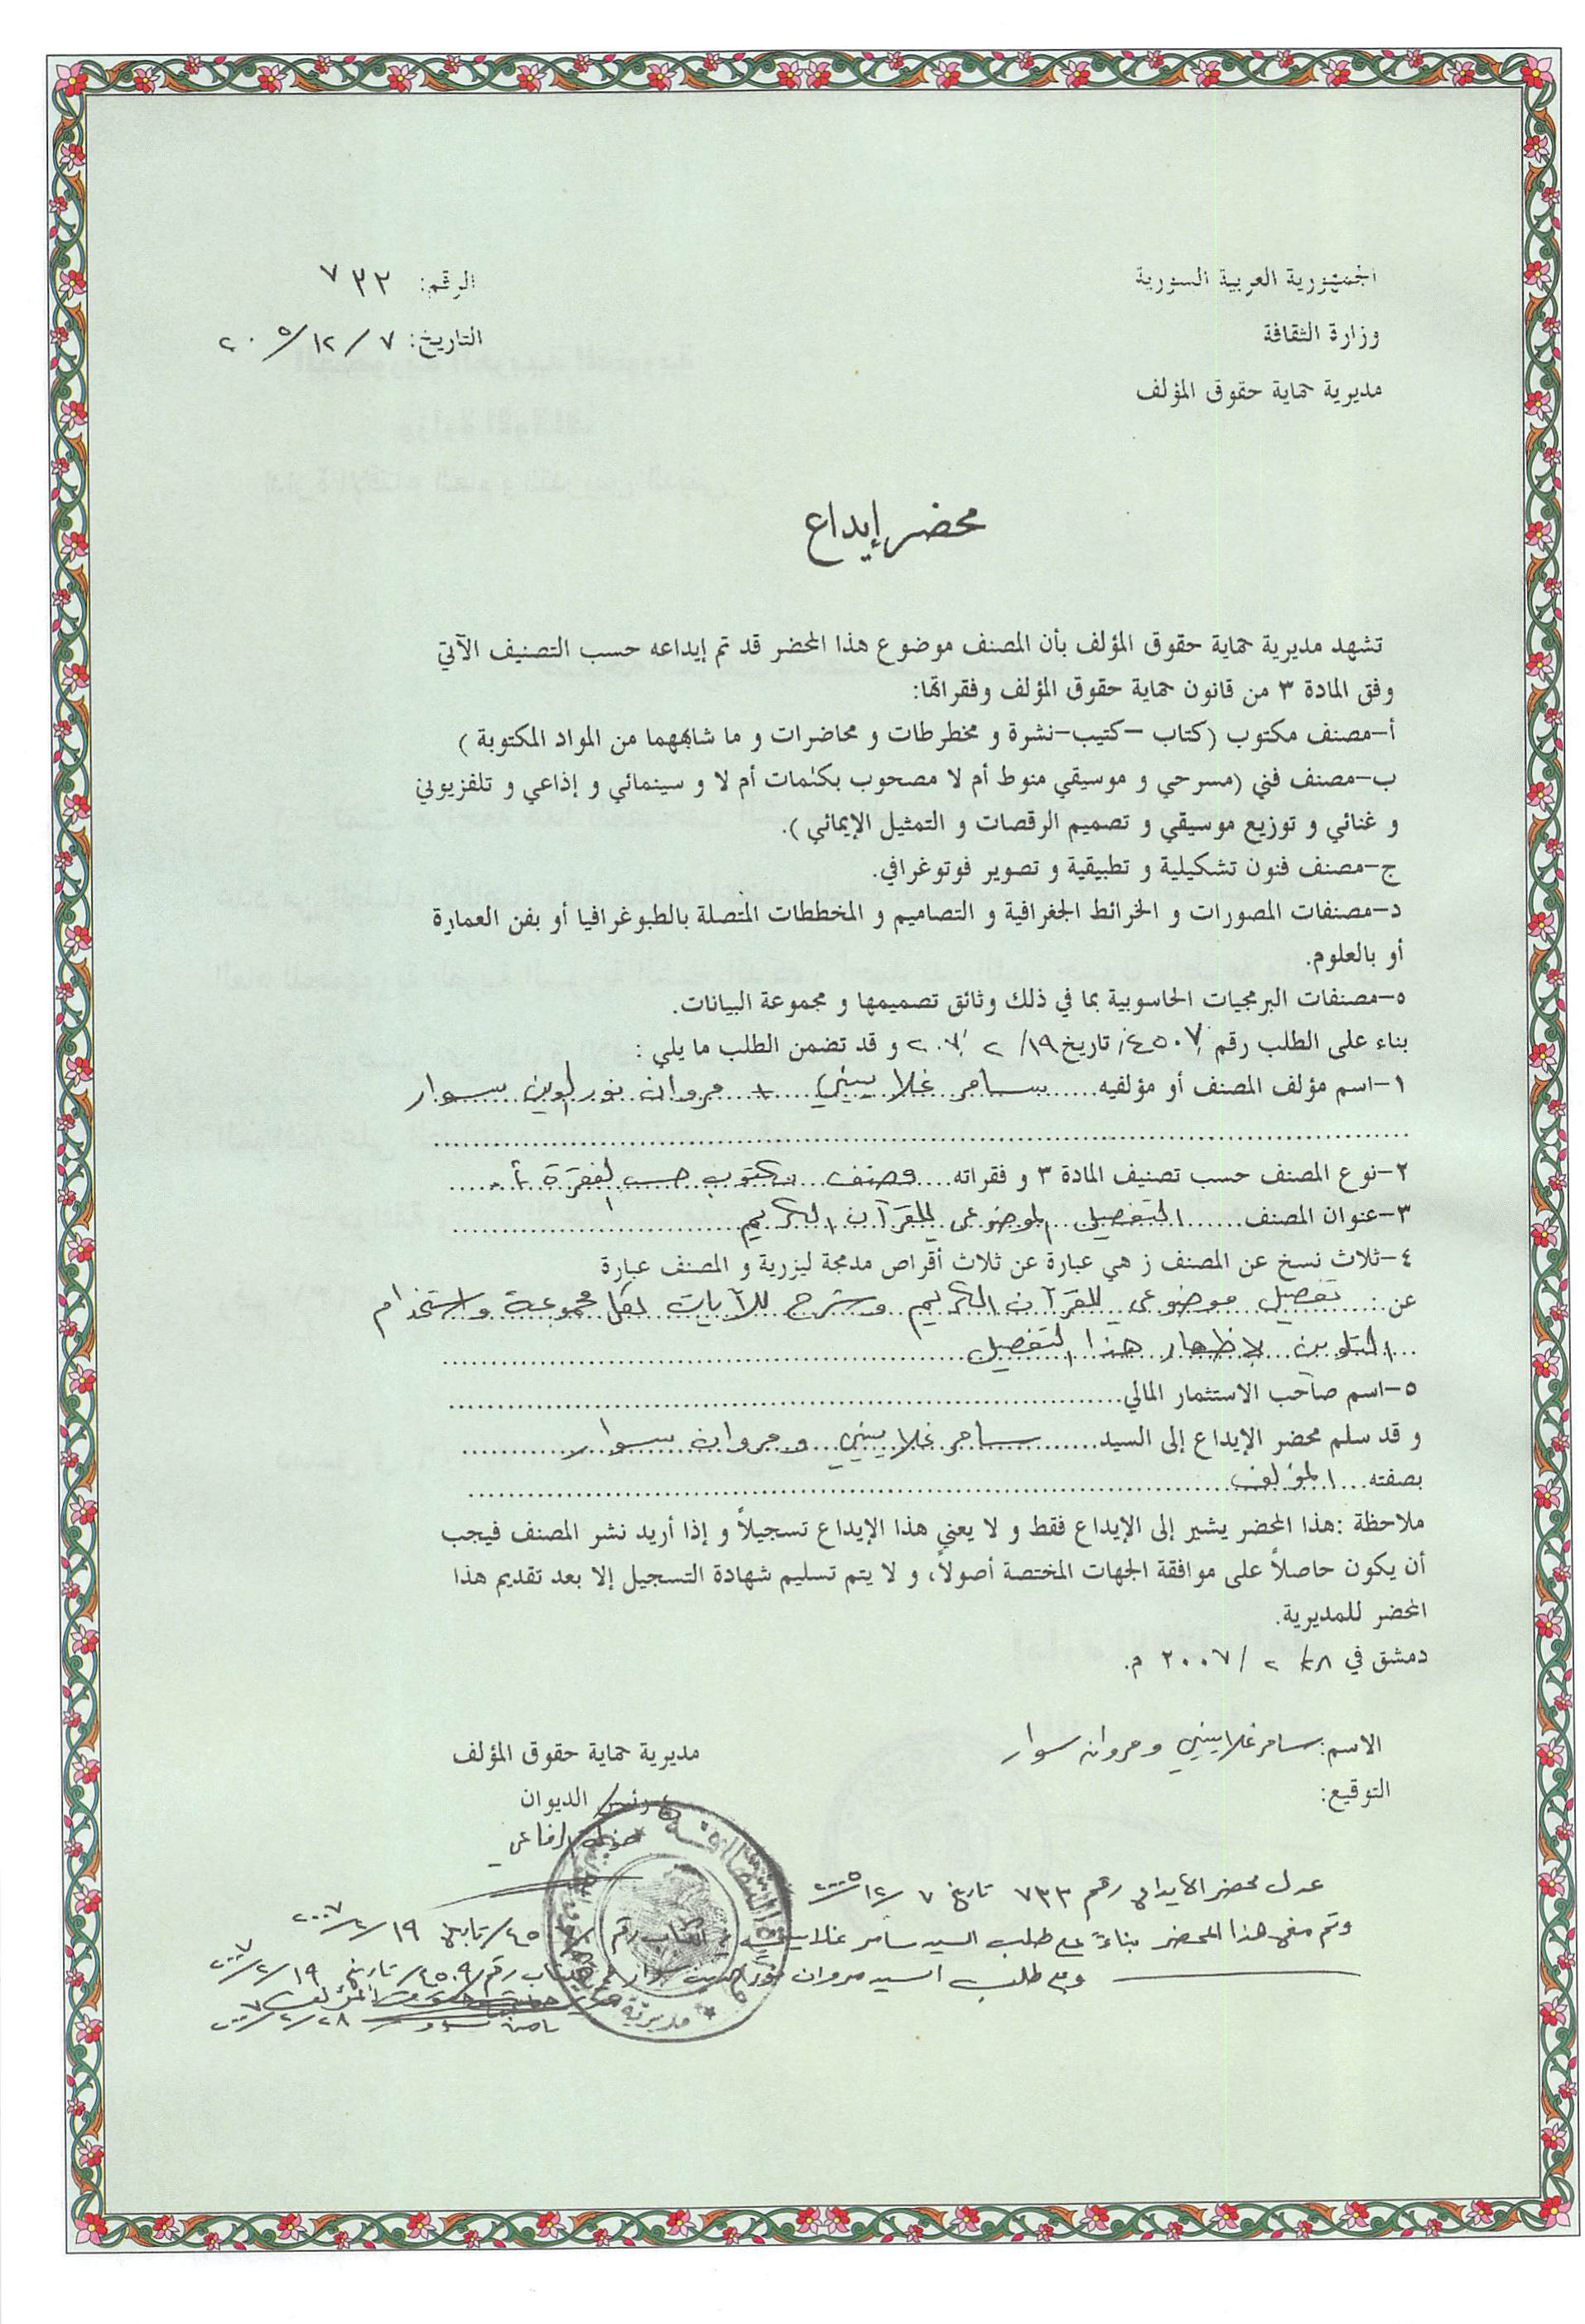 الجمهورية العربية السورية
وزارة الثقافة
مديرية حماية حقوق المؤلف
الرقم: ٧٣٣
التاريخ: ٧ /١٢/ ٢٠٠٥
محضر إيداع
تشهد مديرية حماية حقوق المؤلف بأن المصنف موضوع هذا المحضر قد تم إيداعه حسب التصنيف الآتي
وفق المادة ٣ من قانون حماية حقوق المؤلف وفقراتها:
أ-مصنف مكتوب (كتاب -كتيب-نشرة و مخطرطات و محاضرات و ما شابههما من المواد المكتوبة )
ب-مصنف فني (مسرحي و موسيقي منوط أم لا مصحوب بكلمات أم لا و سينمائي و إذاعي و تلفزيوني
و غنائي و توزيع موسيقي و تصميم الرقصات و التمثيل الإيمائي ).
ج-مصنف فنون تشكيلية و تطبيقية و تصوير فوتوغرافي.
د-مصنفات المصورات و الخرائط الجغرافية و التصاميم و المخططات المتصلة بالطبوغرافيا أو بفن العمارة
أو بالعلوم.
٥-مصنفات البرمجيات الحاسوبية بما في ذلك وثائق تصميمها و مجموعة البيانات.
بناء على الطلب رقم /٤٥٠٧/ تاريخ ١٩/ ٢ /٢٠٠٧ و قد تضمن الطلب ما يلي :
١-اسم مؤلف المصنف أو مؤلفيه.....سامر غلاييني + مروان نور الدين سوار
٢-نوع المصنف حسب تصنيف المادة ٣ و فقراته....مصنف مكتوب حسب الفقرة أ.....
٣-عنوان المصنف......التفصيل الموضوعي للقرآن الكريم......
٤-ثلاث نسخ عن المصنف ز هي عبارة عن ثلاث أقراص مدمجة ليزرية و المصنف عبارة
عن: تفصيل موضوعي للقرآن الكريم وشرح للآيات لكل مجموعة واستخدام
التلوين لإظهار هذا التفصيل......
٥-اسم صاحب الاستثمار المالي......
و قد سلم محضر الإيداع إلى السيد......سامر غلاييني ومروان سوار......
بصفته...المؤلف......
ملاحظة :هذا المحضر يشير إلى الإيداع فقط و لا يعني هذا الإيداع تسجيلاً و إذا أريد نشر المصنف فيجب
أن يكون حاصلاً على موافقة الجهات المختصة أصولاً، و لا يتم تسليم شهادة التسجيل إلا بعد تقديم هذا
المحضر للمديرية.
دمشق في ٢٨/ ٢ /٢٠٠٧ م.
الاسم: سامر غلاييني ومروان سوار
التوقيع:
مديرية حماية حقوق المؤلف
رئيس الديوان
الرفاعي
عدل محضر الايداع رقم ٧٣٣ تاريخ ٧ /١٢/ ٢٠٠٥
وتم منح هذا المحضر بناءً على طلب السيد سامر غلاييني رقم تاريخ ١٩ /٢/ ٢٠٠٧
وعلى طلب السيد مروان نور الدين سوار رقم /٤٥٠٩/ تاريخ ١٩ /٢/ ٢٠٠٧
٢٨ /٢/ ٢٠٠٧